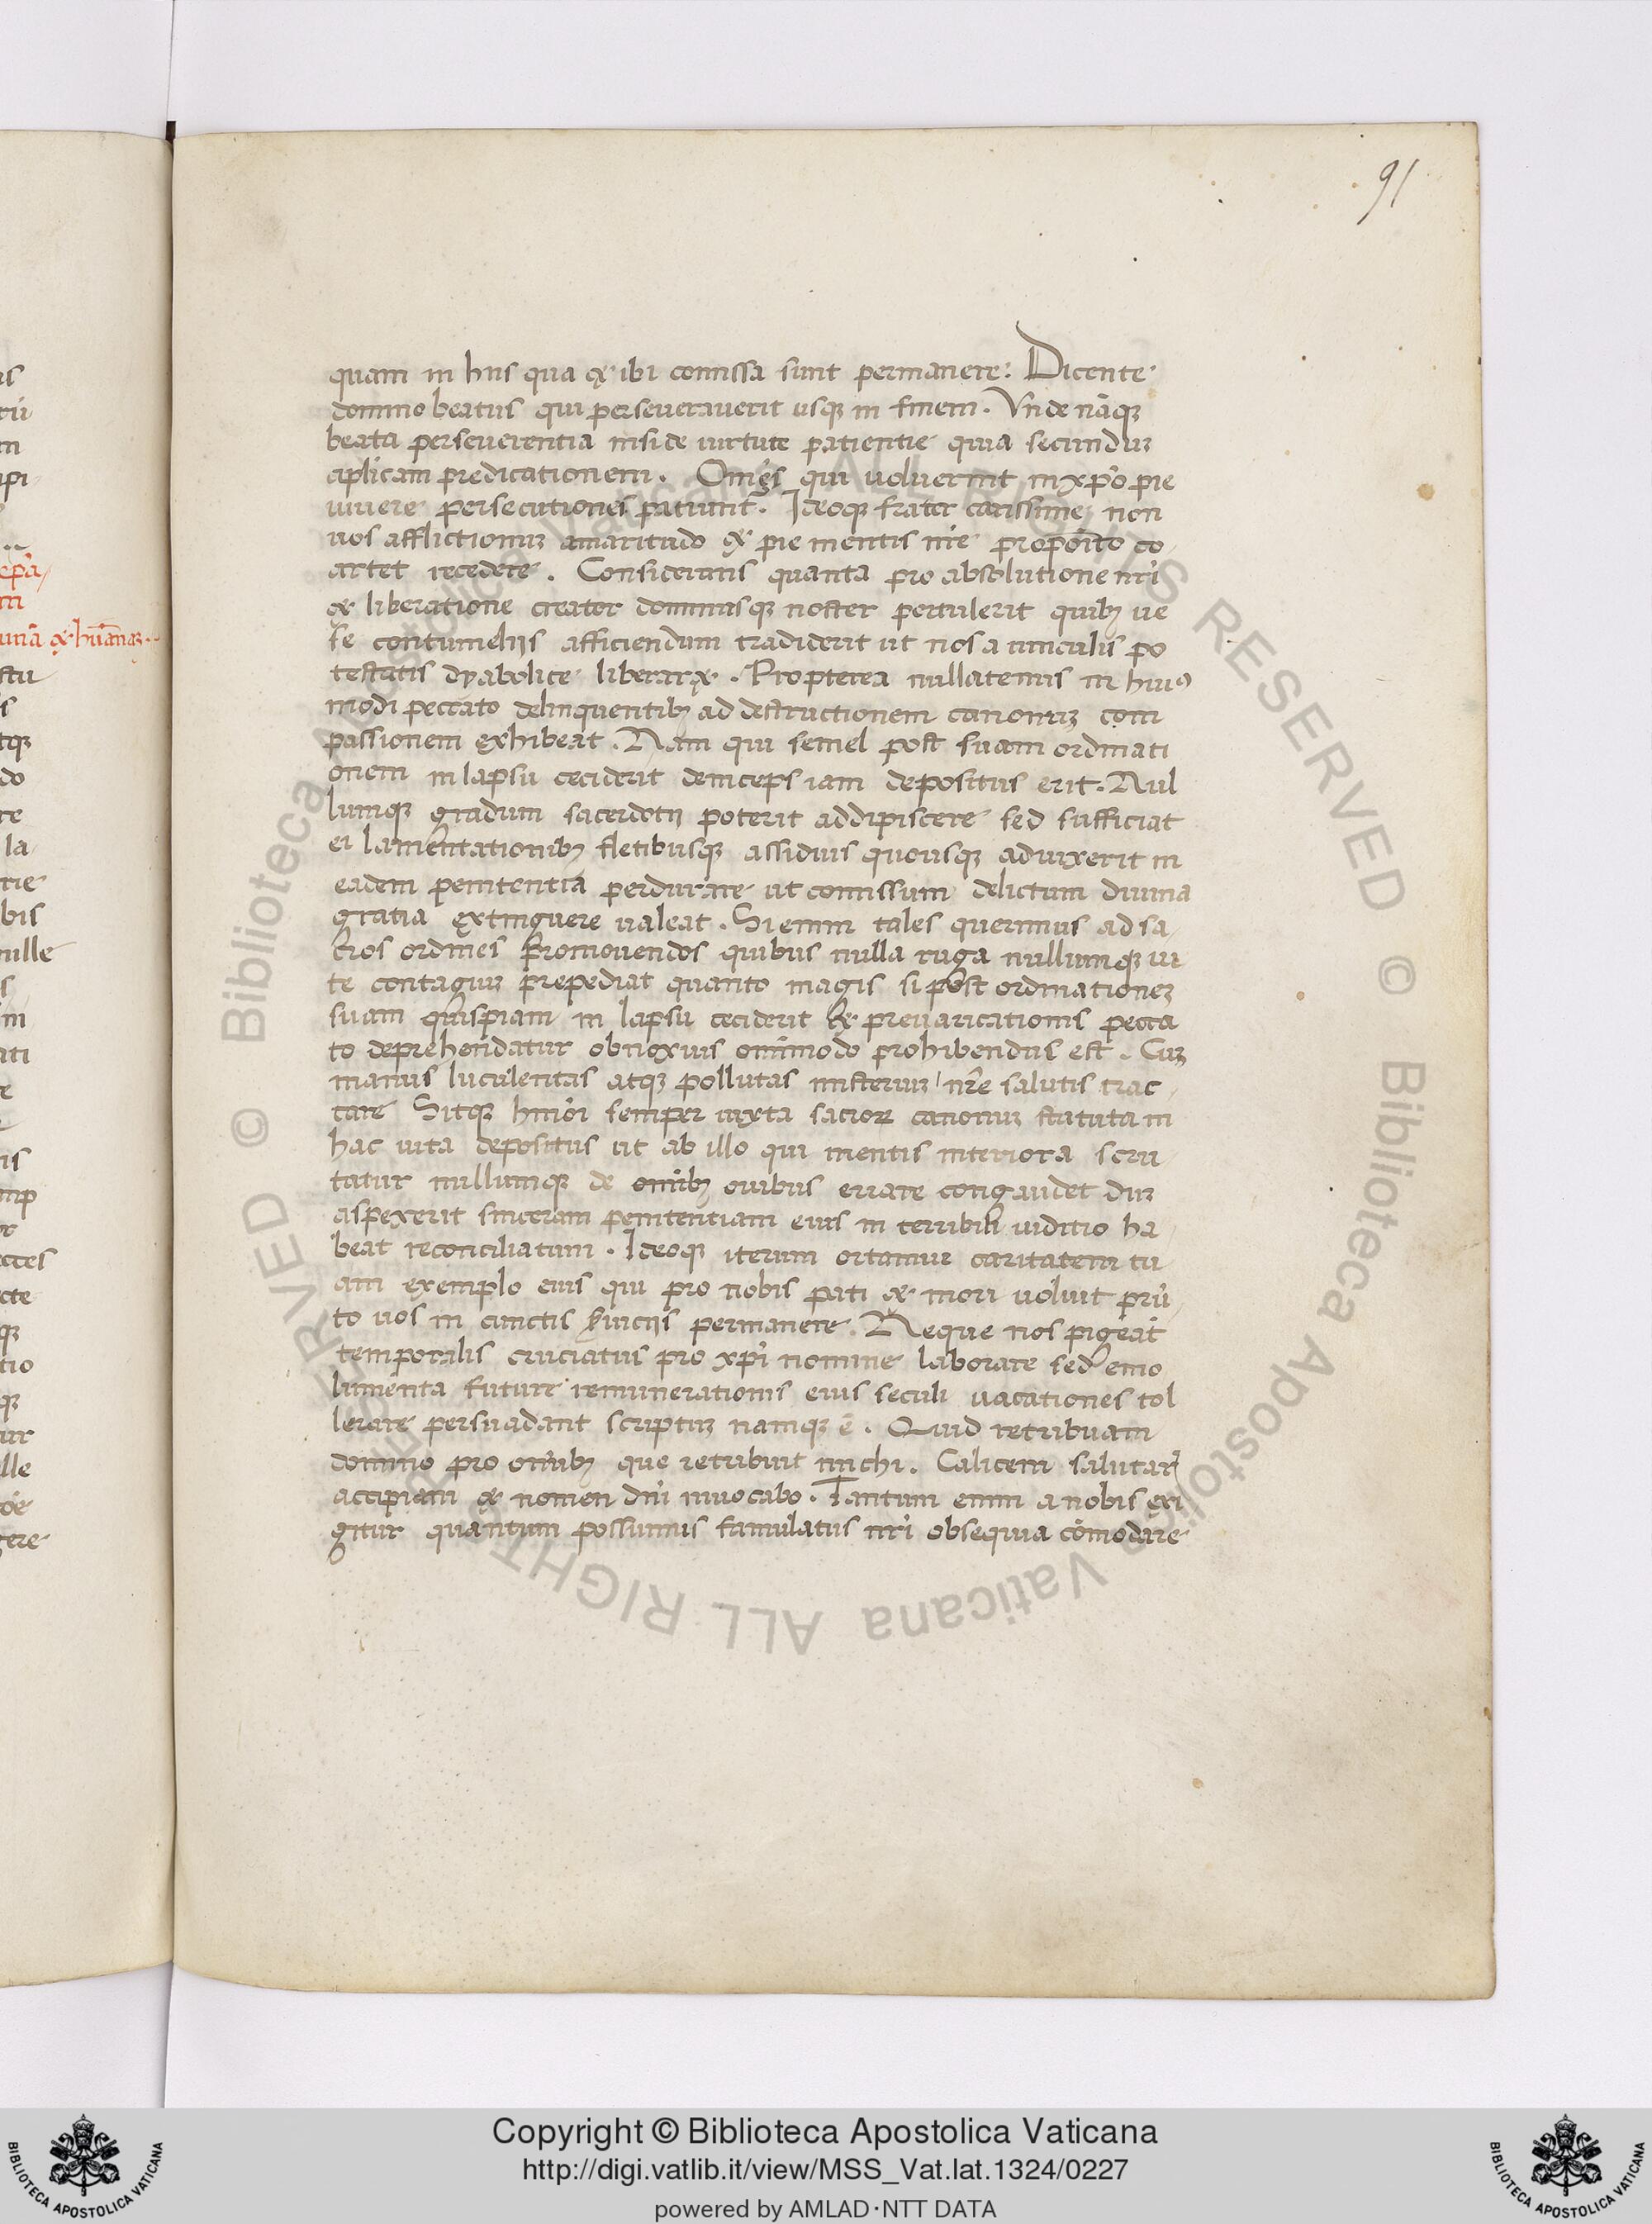 91
quam in hiis qua & ibi comissa sunt permanere: Dicente
domino beatus qui perseveraverit usq3 in finem. Vnde nāq3
beata perseverentia nisi de virtute patientie quia secundu3
aplicam predicationem. Om̄s qui voluerint in xp̄o pie
vivere persecutiones patiunt᷑. Ideoq3 frater carissime non
vos afflictionu3 amaritudo & pie mentis nr̄e propoīto co
artet recedere. Considerans quanta pro absolutione nr̄i
& liberatione creator dominusq3 noster pertulerit quib3 ve
se contumeliis afficiendum tradiderit ut nos a vinculis po
testatis dyabolice liberar&. Propterea nullatenus in huiꝰ
modi peccato delinquentib3 ad destructionem canonu3 com
passionem exhibeat. Nam qui semel post suam ordinati
onem in lapsu ceciderit deinceps iam depositus erit. Nul
lumq3 gradum sacerdotii poterit addipiscere sed sufficiat
ei lamentationib3 fletibusq3 assiduis quousq3 advixerit in
eadem penitentia perdurare ut comissum delictum divina
gratia extinguere valeat. Si enim tales querimus ad sa
cros ordines promovendos quibus nulla ruga nullumq3 vi
te contagiu3 prepediat quanto magis si post ordinatione3
suam quispiam in lapsu ceciderit & prevaricationis pecca
to deprehendatur obnoxius omimodo prohibendus est. Cu3
manus luculentas atq3 pollutas misteriu3 nr̄e salutis trac
tare Sitq3 hmōi semper iuxta sacroꝝ canonu3 statuta in
hac vita depositus ut ab illo qui mentis interiora scru
tatur nullumq3 de omib3 ovibus errare congaudet du3
aspexerit sinceram penitentiam eius in terribili iuditio ha
beat reconciliatum. Ideoq3 iterum ortamur caritatem tu
am exemplo eius qui pro nobis pati & mori voluit prū
to vos in cunctis permanere. Neque nos pigeat
temporalis cruciatus pro xp̄i nomine laborare sed emo
lumenta future remunerationis eius seculi vacationes tol
lerare persuadant scriptu3 namq3 ē. Quid retribuam
domino pro omib3 que retribuit michi. Calicem salutar̄
accipiam & nomen dn̄i invocabo. Tantum enim a nobis exi
gitur quantum possumus famulatus nr̄i obsequia cōmodare
Copyright © Biblioteca Apostolica Vaticana
http://digi.vatlib.it/view/MSS_Vat.lat.1324/0227
powered by AMLAD·NTT DATA
BIBLIOTECA APOSTOLICA VATICANA
BIBLIOTECA APOSTOLICA VATICANA